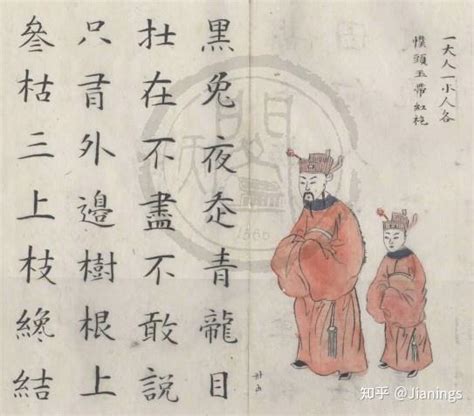 一大人一小人各
幞頭玉帶紅袍
黑兔夜青龍目
在不盡不敢說
只外邊樹根上
枯三上枝纔結
知乎 @Jianings